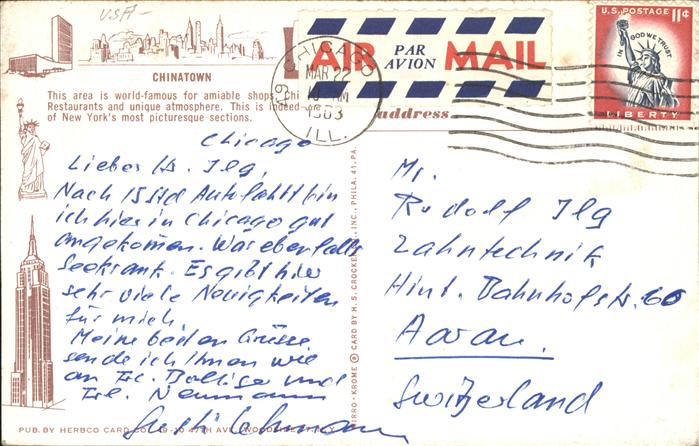 USA-
CHINATOWN
This area is world-famous for amiable shops, Chi
Restaurants and unique atmosphere. This is indeed
of New York's most picturesque sections.
AIR PAR AVION MAIL
CHICAGO
MAR 22
PM
1963
ILL.
U.S. POSTAGE 11¢
IN GOD WE TRUST
LIBERTY
address
Chicago
Lieber Hr. Ilg,
Nach 15 Std Autofahrt bin
ich hier in Chicago gut
angekommen. War ebenfalls
Seekrank. Es gibt hier
sehr viele Neuigkeiten
für mich
Meine besten Grüsse
sende ich Ihnen wie
an Frl. Bolliger und
Frl. Neumann
Mr.
Rudolf Ilg
Zahntechnik
Hint. Bahnhofstr. 60
Aarau.
Switzerland
MIRRO-KROME ® CARD BY H. S. CROCKER CO., INC., PHILA. 41, PA.
PUB. BY HERBCO CARD CO. 49-10 47TH AVE. WOODSIDE